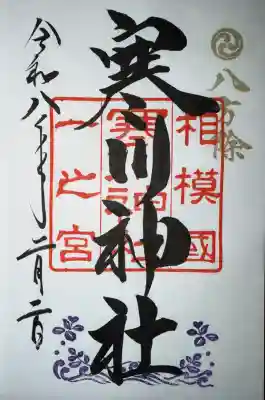 八方除
寒川神社
相模國
寒川神社
一之宮
令和八年二月二日